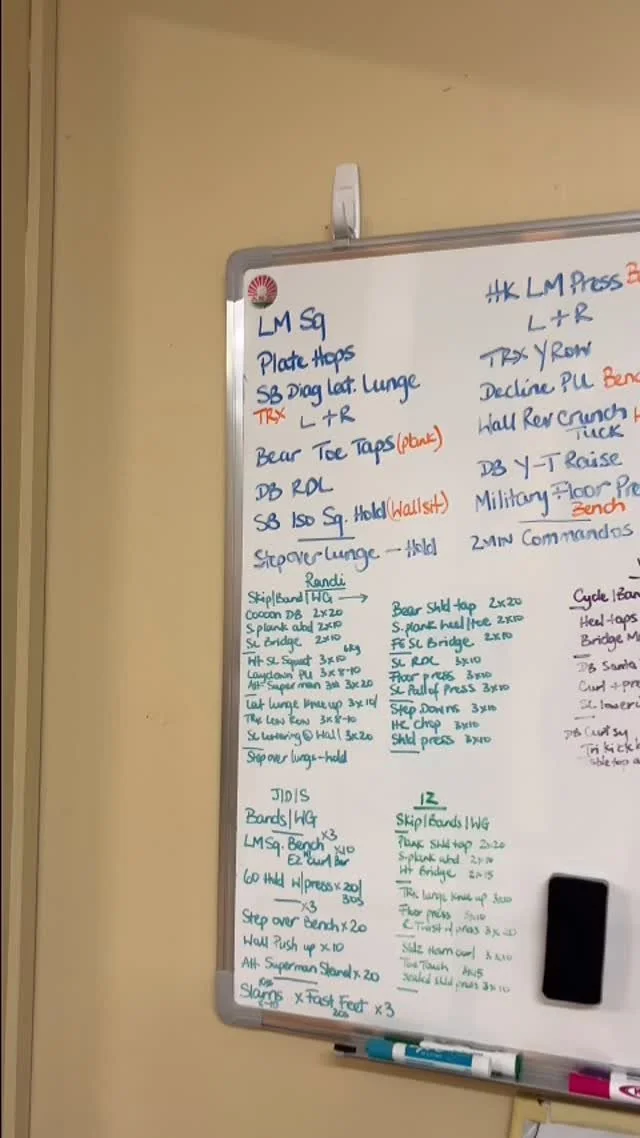 LM Sq
Plate Hops
SB Diag Lat. Lunge
TRX L + R
Bear Toe Taps (plank)
DB RDL
SB Iso Sq. Hold (Wallsit)
Step over Lunge - Hold
HK LM Press
L + R
TRX Y Row
Decline PU Benc
Wall Rev Crunch
Tuck
DB Y-T Raise
Military Floor Pre
Bench
2MIN Commandos
Randi
Skip/Band/WG
Cocoon DB 2x20
S.plank abd 2x10
SL Bridge 2x10
6kg
Wt SL Squat 3x10
Laydown PU 3x8-10
Alt Superman 3x20
Lat lunge knee up 3x10/
TRX Low Row 3x8-10
SL Lowering @ Wall 3x20
Step over lungs-hold
Bear Shld tap 2x20
S.plank heel/toe 2x10
SL Bridge 2x10
SL RDL 3x10
Floor press 3x10
SL Pall of Press 3x10
Step Downs 3x10
HK Chop 3x10
Shld press 3x10
Cycle/Ban
Heel taps
Bridge M
DB Santa
Curl + pre
SL loweri
DB Curtsy
Tri kickb
table top a
J/D/S
Bands/WG
x3
LM Sq. Bench x10
EZ Curl Bar
60 Hold W/press x 20/
30s
x3
Step over Bench x 20
Wall Push up x 10
Alt. Superman Stand x 20
Slams x Fast Feet x3
20s
IZ
Skip/Bands/WG
Plank Shld tap 2x20
S-plank abd 2x10
Wt Bridge 2x15
TRX lunge knee up 3x10
Floor press 3x10
Twist of press 3x20
Slide Ham curl 3x10
Toe Touch 4x15
Seated Shld press 3x10